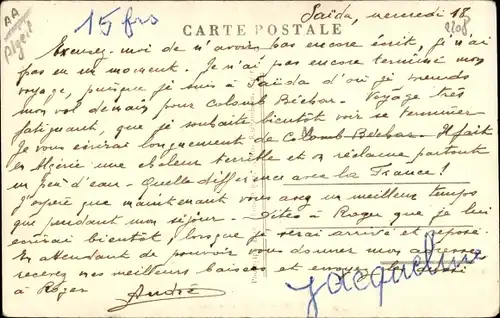 AA
Algérie
15 frs
CARTE POSTALE
Saïda, mercredi 18
Excusez-moi de n'avoir pas encore écrit, je n'ai
pas eu un moment. Je n'ai pas encore terminé mon
voyage, puisque je suis à Saïda d'où je prends
mon vol demain pour Colomb Béchar. Voyage très
fatigant, que je souhaite bientôt voir se terminer
Je vous écrirai longuement de Colomb-Béchar. Il fait
en Algérie une chaleur terrible et on réclame partout
un peu d'eau - Quelle différence avec la France!
J'espère que maintenant vous avez un meilleur temps
que pendant mon séjour. - Dites à Roger que je lui
écrirai bientôt, lorsque je serai arrivé et reposé.
En attendant de pouvoir vous donner mon adresse
recevez mes meilleurs baisers et
à Roger
André
Jacqueline